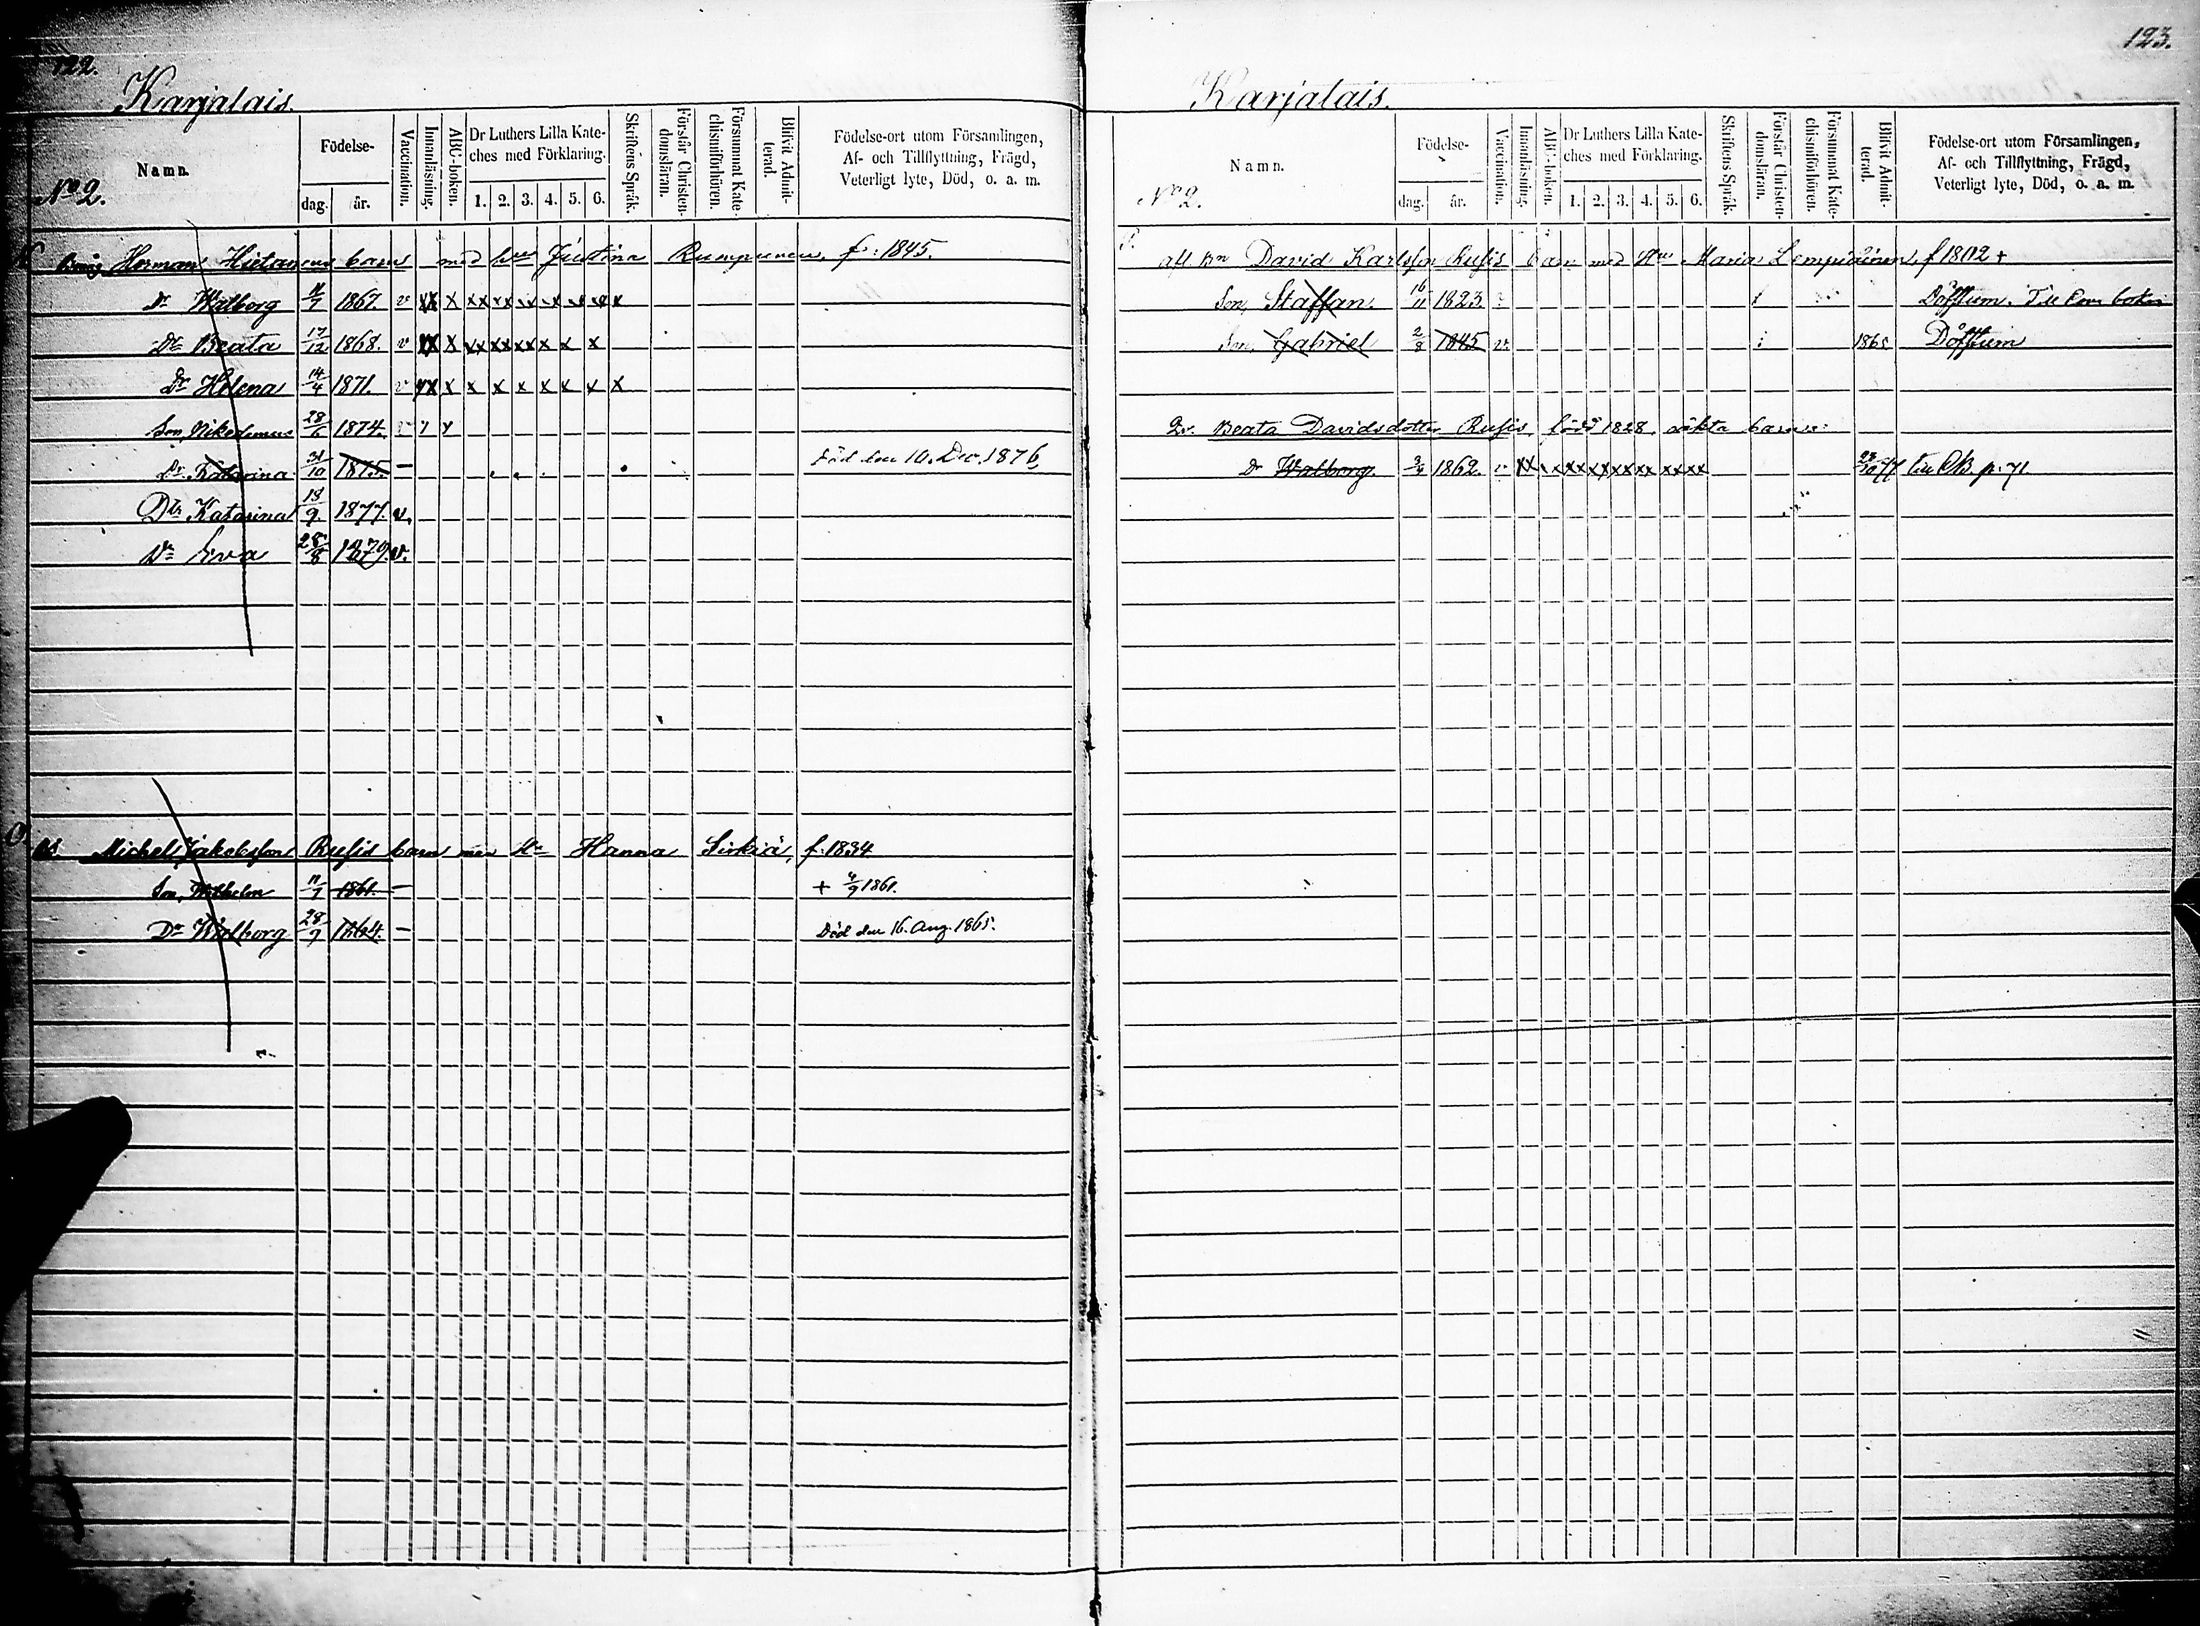 122.
Karjalais.
Namn.
No 2.
Födelse-
dag.
år.
Vaccination.
Innanläsning.
ABC-boken.
Dr Luthers Lilla Kate-
ches med Förklaring.
1. 2. 3. 4. 5. 6.
Skriftens Språk.
Förstår Christen-
domsläran.
Försummat Kate-
chismiförhören.
Blifvit Admit-
terad.
Födelse-ort utom Församlingen,
Af- och Tillflyttning, Frägd,
Veterligt lyte, Död, o. a. m.
Herman Hietanens barn med hu Justina Rumpunen f: 1845.
Dr Walborg 1867. v xx x xx xx xx x x xx x
Dtr Beata 17/12 1868. v xx x xx xx xx x x x
Dr Helena 14/4 1871. v xx x x x x x x x x
Son, Nikodemus 28/6 1874. v
Dr Katarina 31/10 1875. – Död den 10. Dec. 1876
Dtr Katarina 13/9. 1877. v.
Dr Eva 28/8 1879. v.
Michel Jakobsson Rusis barn med Hu Hanna Sirkiä, f. 1834
Son, Wilhelm 11/7 1861. – + 4/9 1861.
Dr Walborg 28/9 1864. – Död den 16. Aug. 1865.
123.
Karjalais.
Namn.
No 2.
Födelse-
dag.
år.
Vaccination.
Innanläsning.
ABC-boken.
Dr Luthers Lilla Kate-
ches med Förklaring.
1. 2. 3. 4. 5. 6.
Skriftens Språk.
Förstår Christen-
domsläran.
Försummat Kate-
chismiförhören.
Blifvit Admit-
terad.
Födelse-ort utom Församlingen,
Af- och Tillflyttning, Frägd,
Veterligt lyte, Död, o. a. m.
afl. Bn David Karlsson Rusis barn med Hu Maria Lempiäinen, f 1802 +
Son, Staffan 16/11 1823. Döfstum.
Son, Gabriel 2/8 1845 v. 1865 Döfstum
Beata Davidsdotter Rusis, född 1828, oäkta barn:
Dr Walborg. 3/4 1862. v xx x xx xx xx xx xx xx 77 till CB p. 71